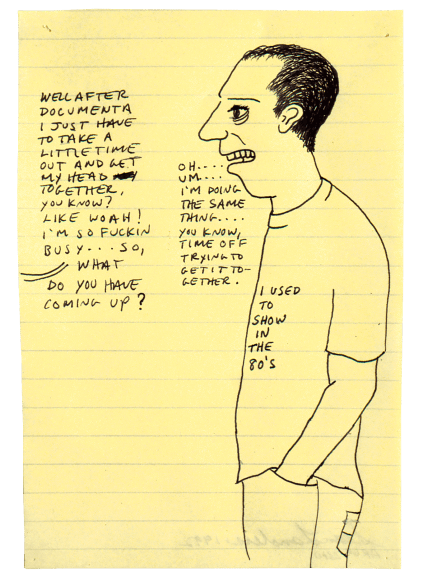 WELL AFTER
DOCUMENTA
I JUST HAVE
TO TAKE A
LITTLE TIME
OUT AND GET
MY HEAD
TOGETHER,
YOU KNOW?
LIKE WOAH!
I'M SO FUCKIN
BUSY...SO,
WHAT
DO YOU HAVE
COMING UP?
OH....
UM....
I'M DOING
THE SAME
THING....
YOU KNOW,
TIME OFF
TRYING TO
GET IT TO-
GETHER.
I USED
TO
SHOW
IN
THE
80'S